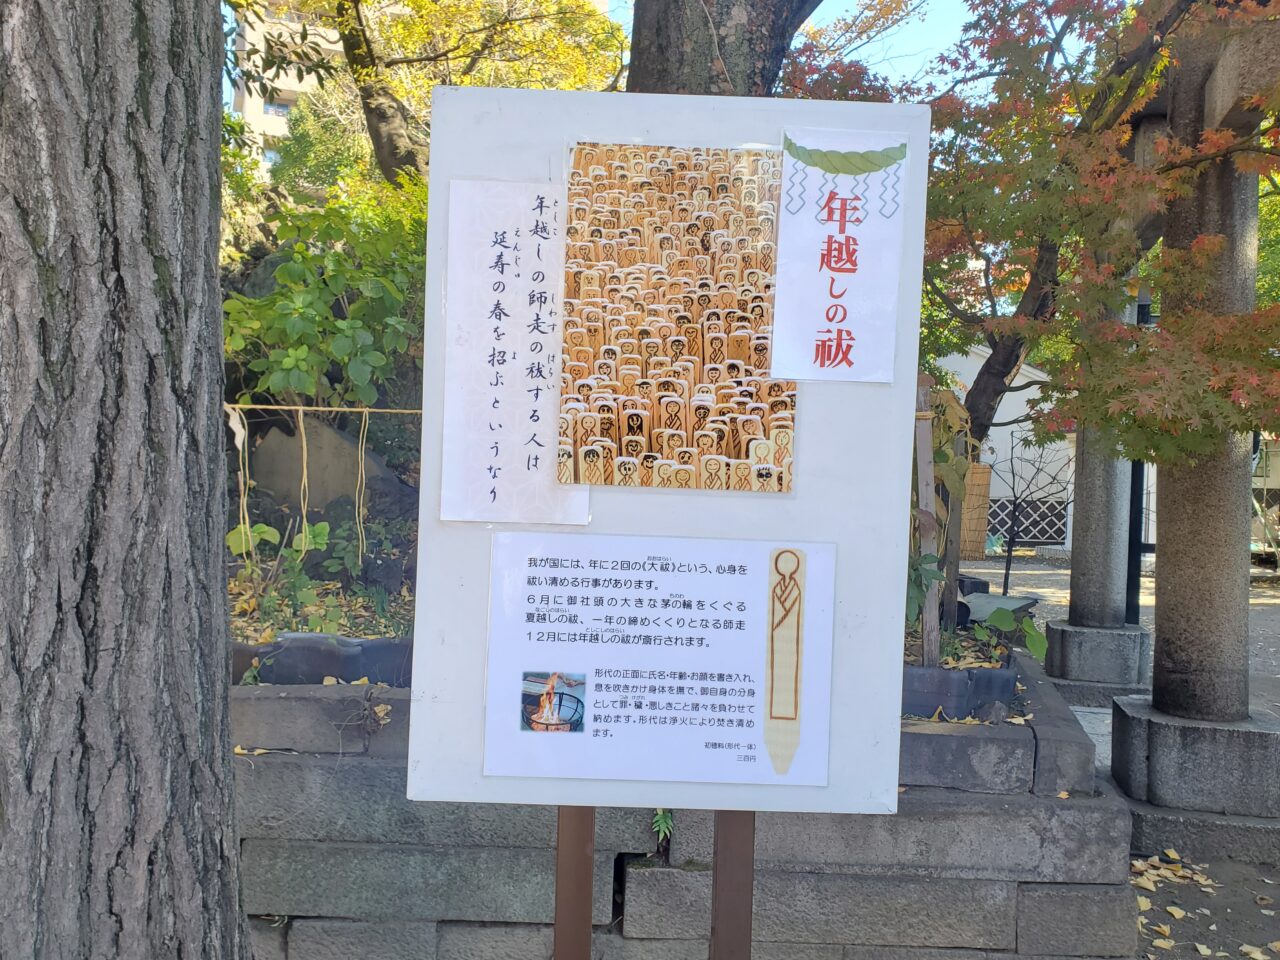 年越しの祓
年越しの師走の祓する人は
としこ
しわす
はらい
延寿の春を招ぶというなり
えんじゅ
よ
我が国には、年に2回の《大祓》という、心身を
おおはらい
祓い清める行事があります。
6月に御社頭の大きな茅の輪をくぐる
ちのわ
夏越しの祓、一年の締めくくりとなる師走
なごしのはらい
12月には年越しの祓が斎行されます。
としこしのはらい
形代の正面に氏名・年齢・お顔を書き入れ、
息を吹きかけ身体を撫で、御自身の分身
として罪・穢・悪しきこと諸々を負わせて
つみ けがれ
納めます。形代は浄火により焚き清め
ます。
初穂料(形代一体)
三百円